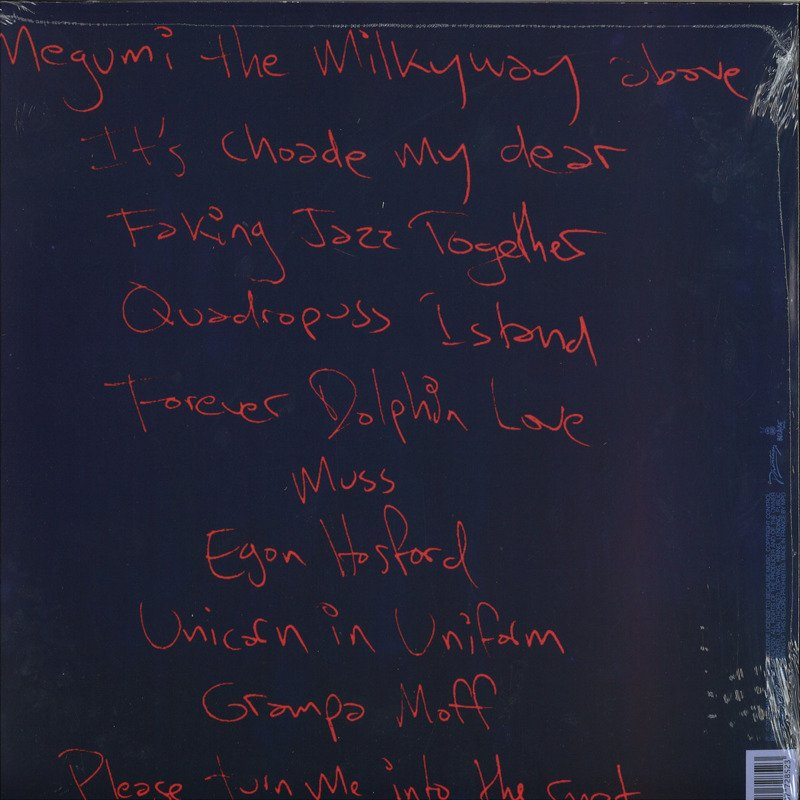 Megumi the Milkyway above
It's choade my dear
Faking Jazz Together
Quadropuss Island
Forever Dolphin Love
Muss
Egon Hosford
Unicorn in Uniform
Grampa Moff
Please turn me into the snat